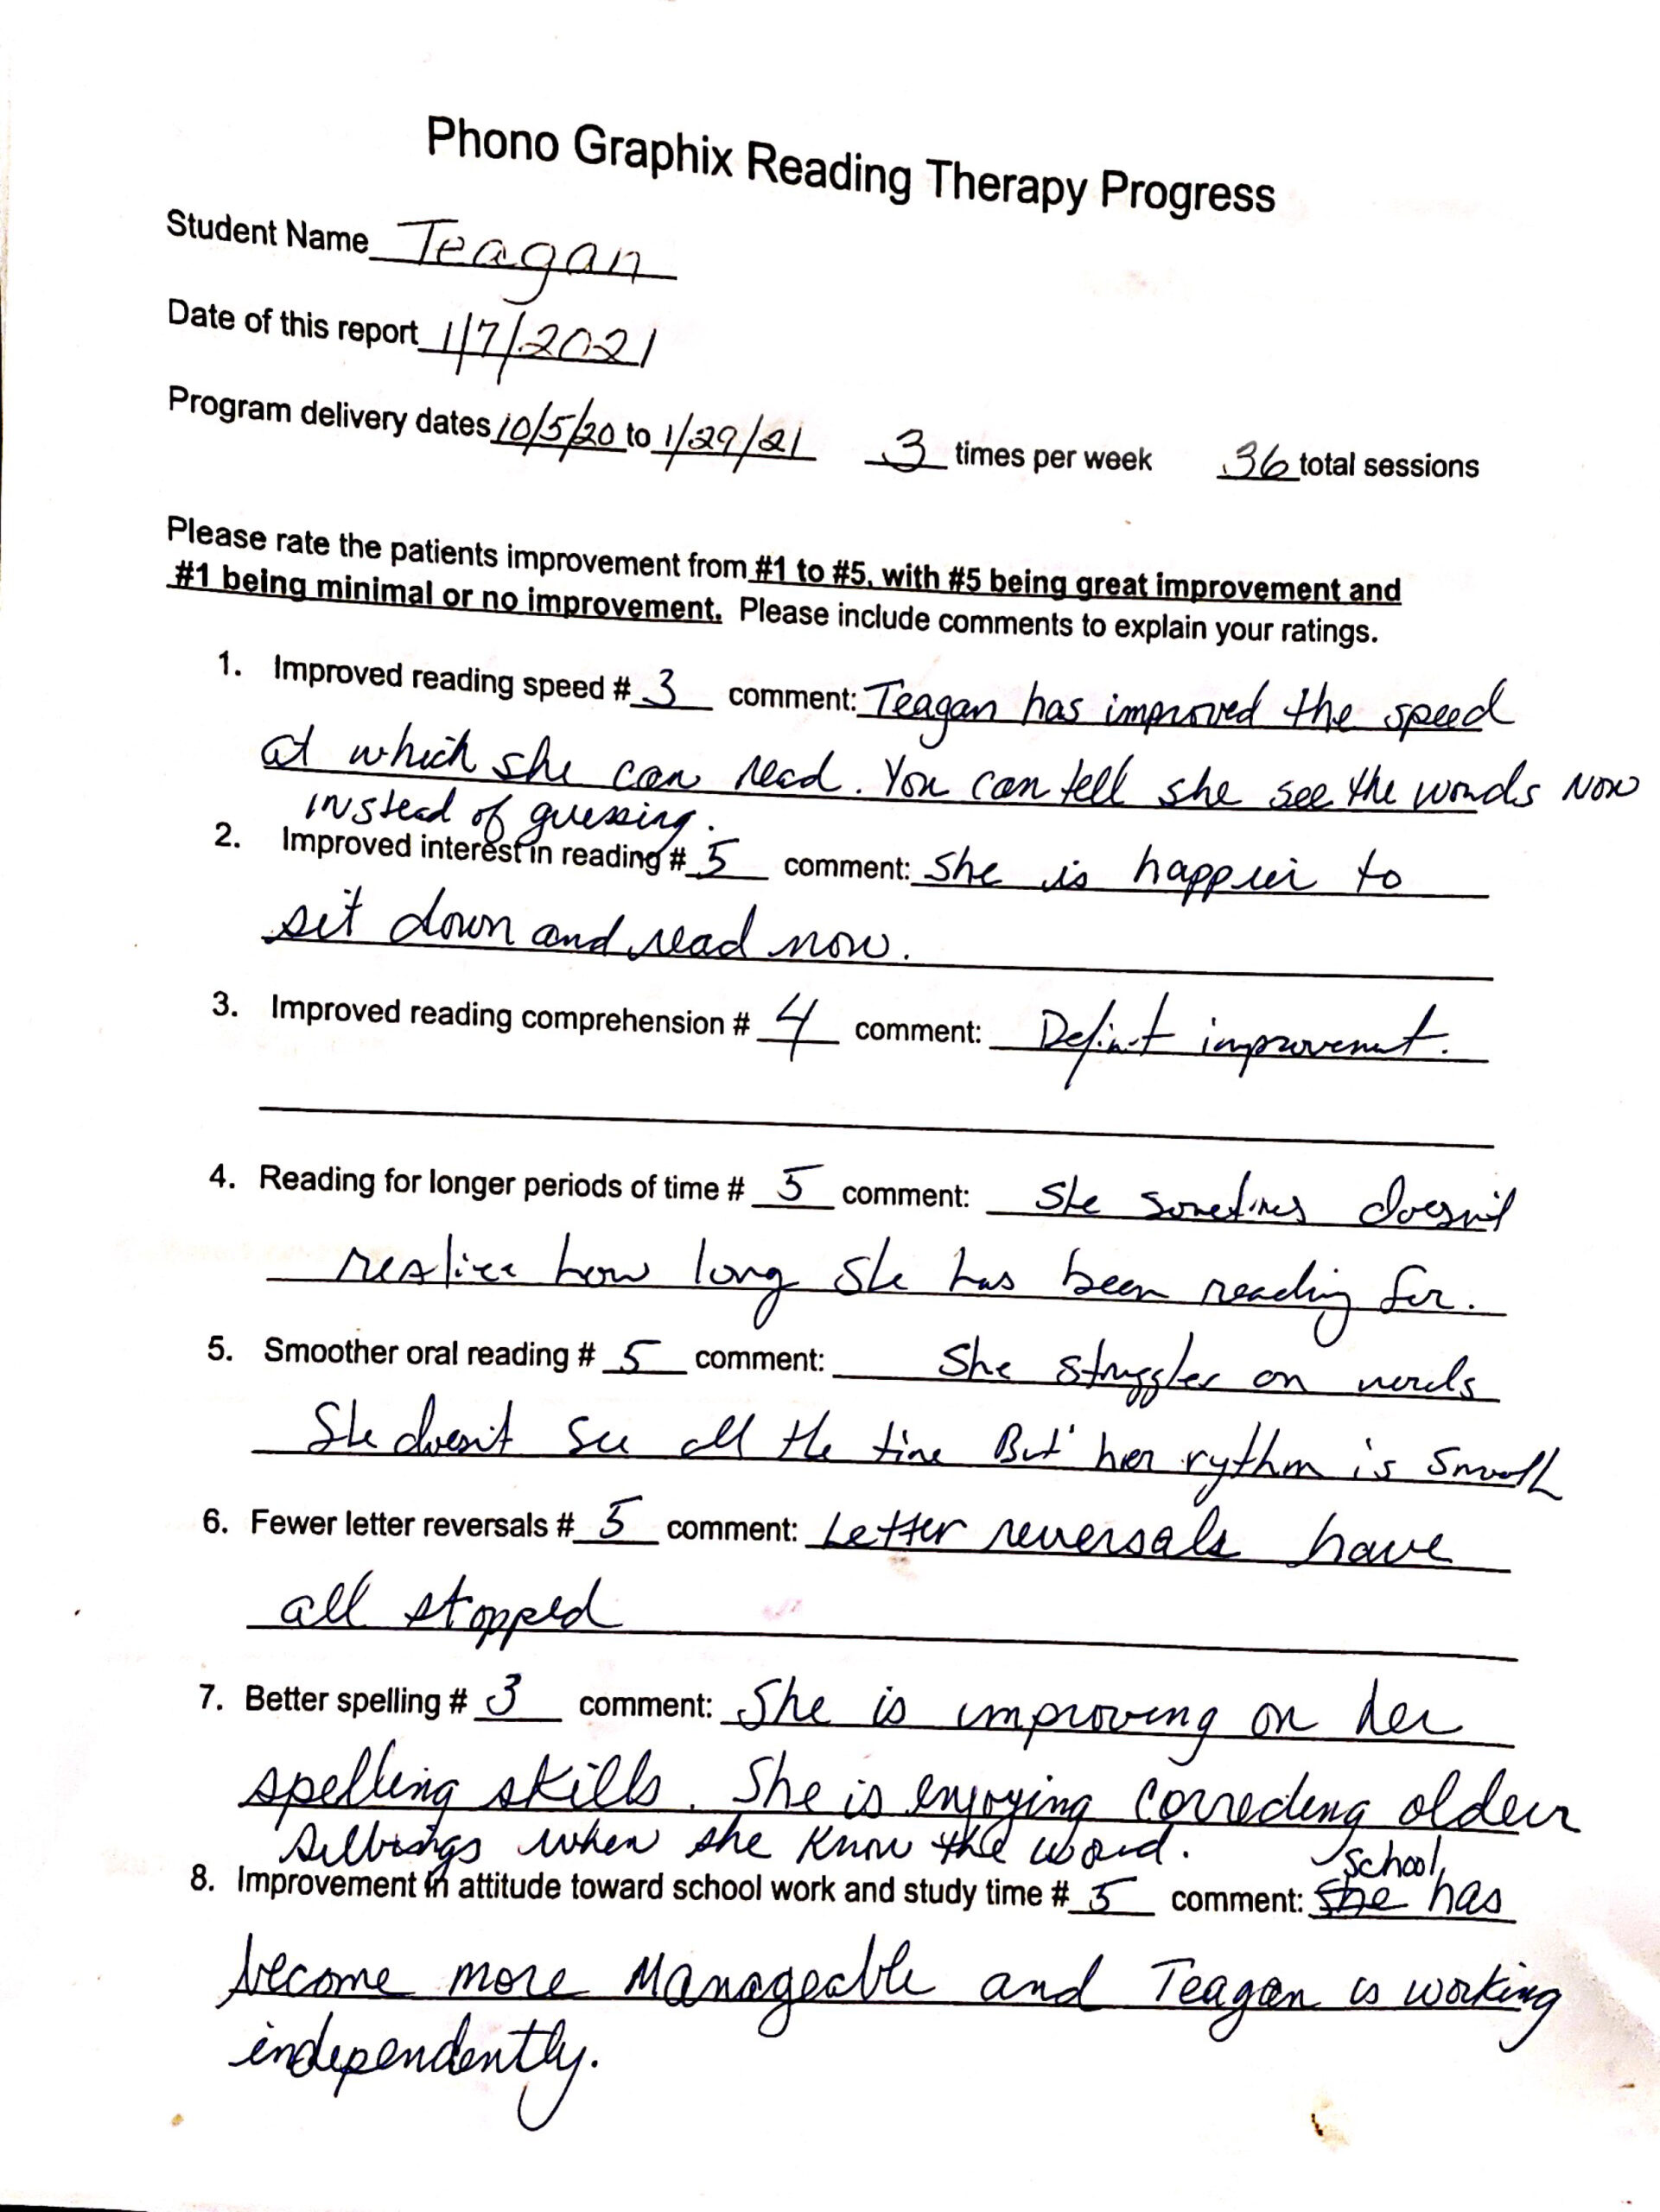 Phono Graphix Reading Therapy Progress
Student Name Teagan
Date of this report 1/7/2021
Program delivery dates 10/5/20 to 1/29/21 3 times per week 36 total sessions
Please rate the patients improvement from #1 to #5, with #5 being great improvement and
#1 being minimal or no improvement. Please include comments to explain your ratings.
1. Improved reading speed # 3 comment: Teagan has improved the speed
at which she can read. You can tell she see the words now
instead of guessing.
2. Improved interest in reading # 5 comment: She is happier to
sit down and read now.
3. Improved reading comprehension # 4 comment: Definit improvement.
4. Reading for longer periods of time # 5 comment: She sometimes doesn't
realize how long she has been reading for.
5. Smoother oral reading # 5 comment: She struggles on words
She doesn't see all the time But her rythm is smooth
6. Fewer letter reversals # 5 comment: Letter reversals have
all stopped
7. Better spelling # 3 comment: She is improving on her
spelling skills. She is enjoying correcting older
silbings when she know the word.
School,
8. Improvement in attitude toward school work and study time # 5 comment: She has
become more manageable and Teagan is working
independently.